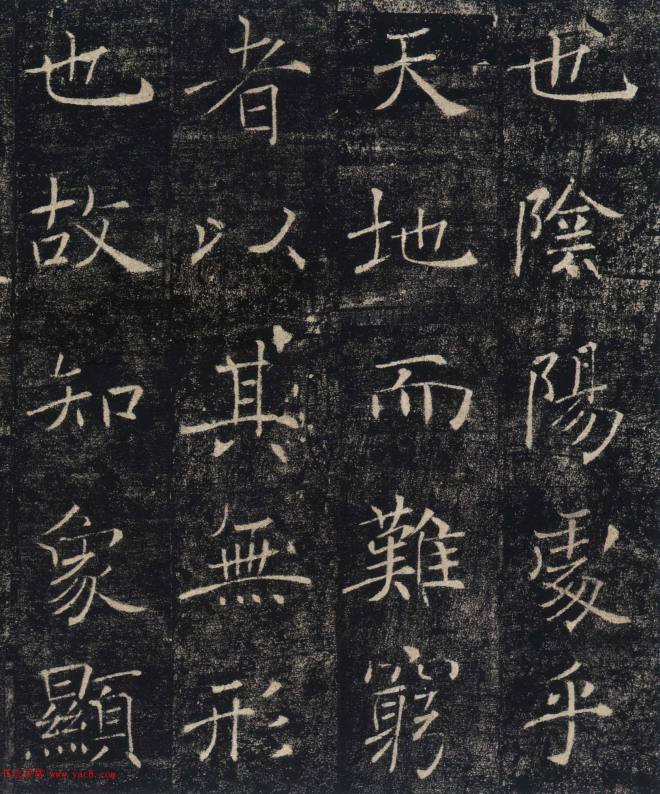 也陰陽處乎
天地而難窮
者以其無形
也故知象顯
www.yac8.com